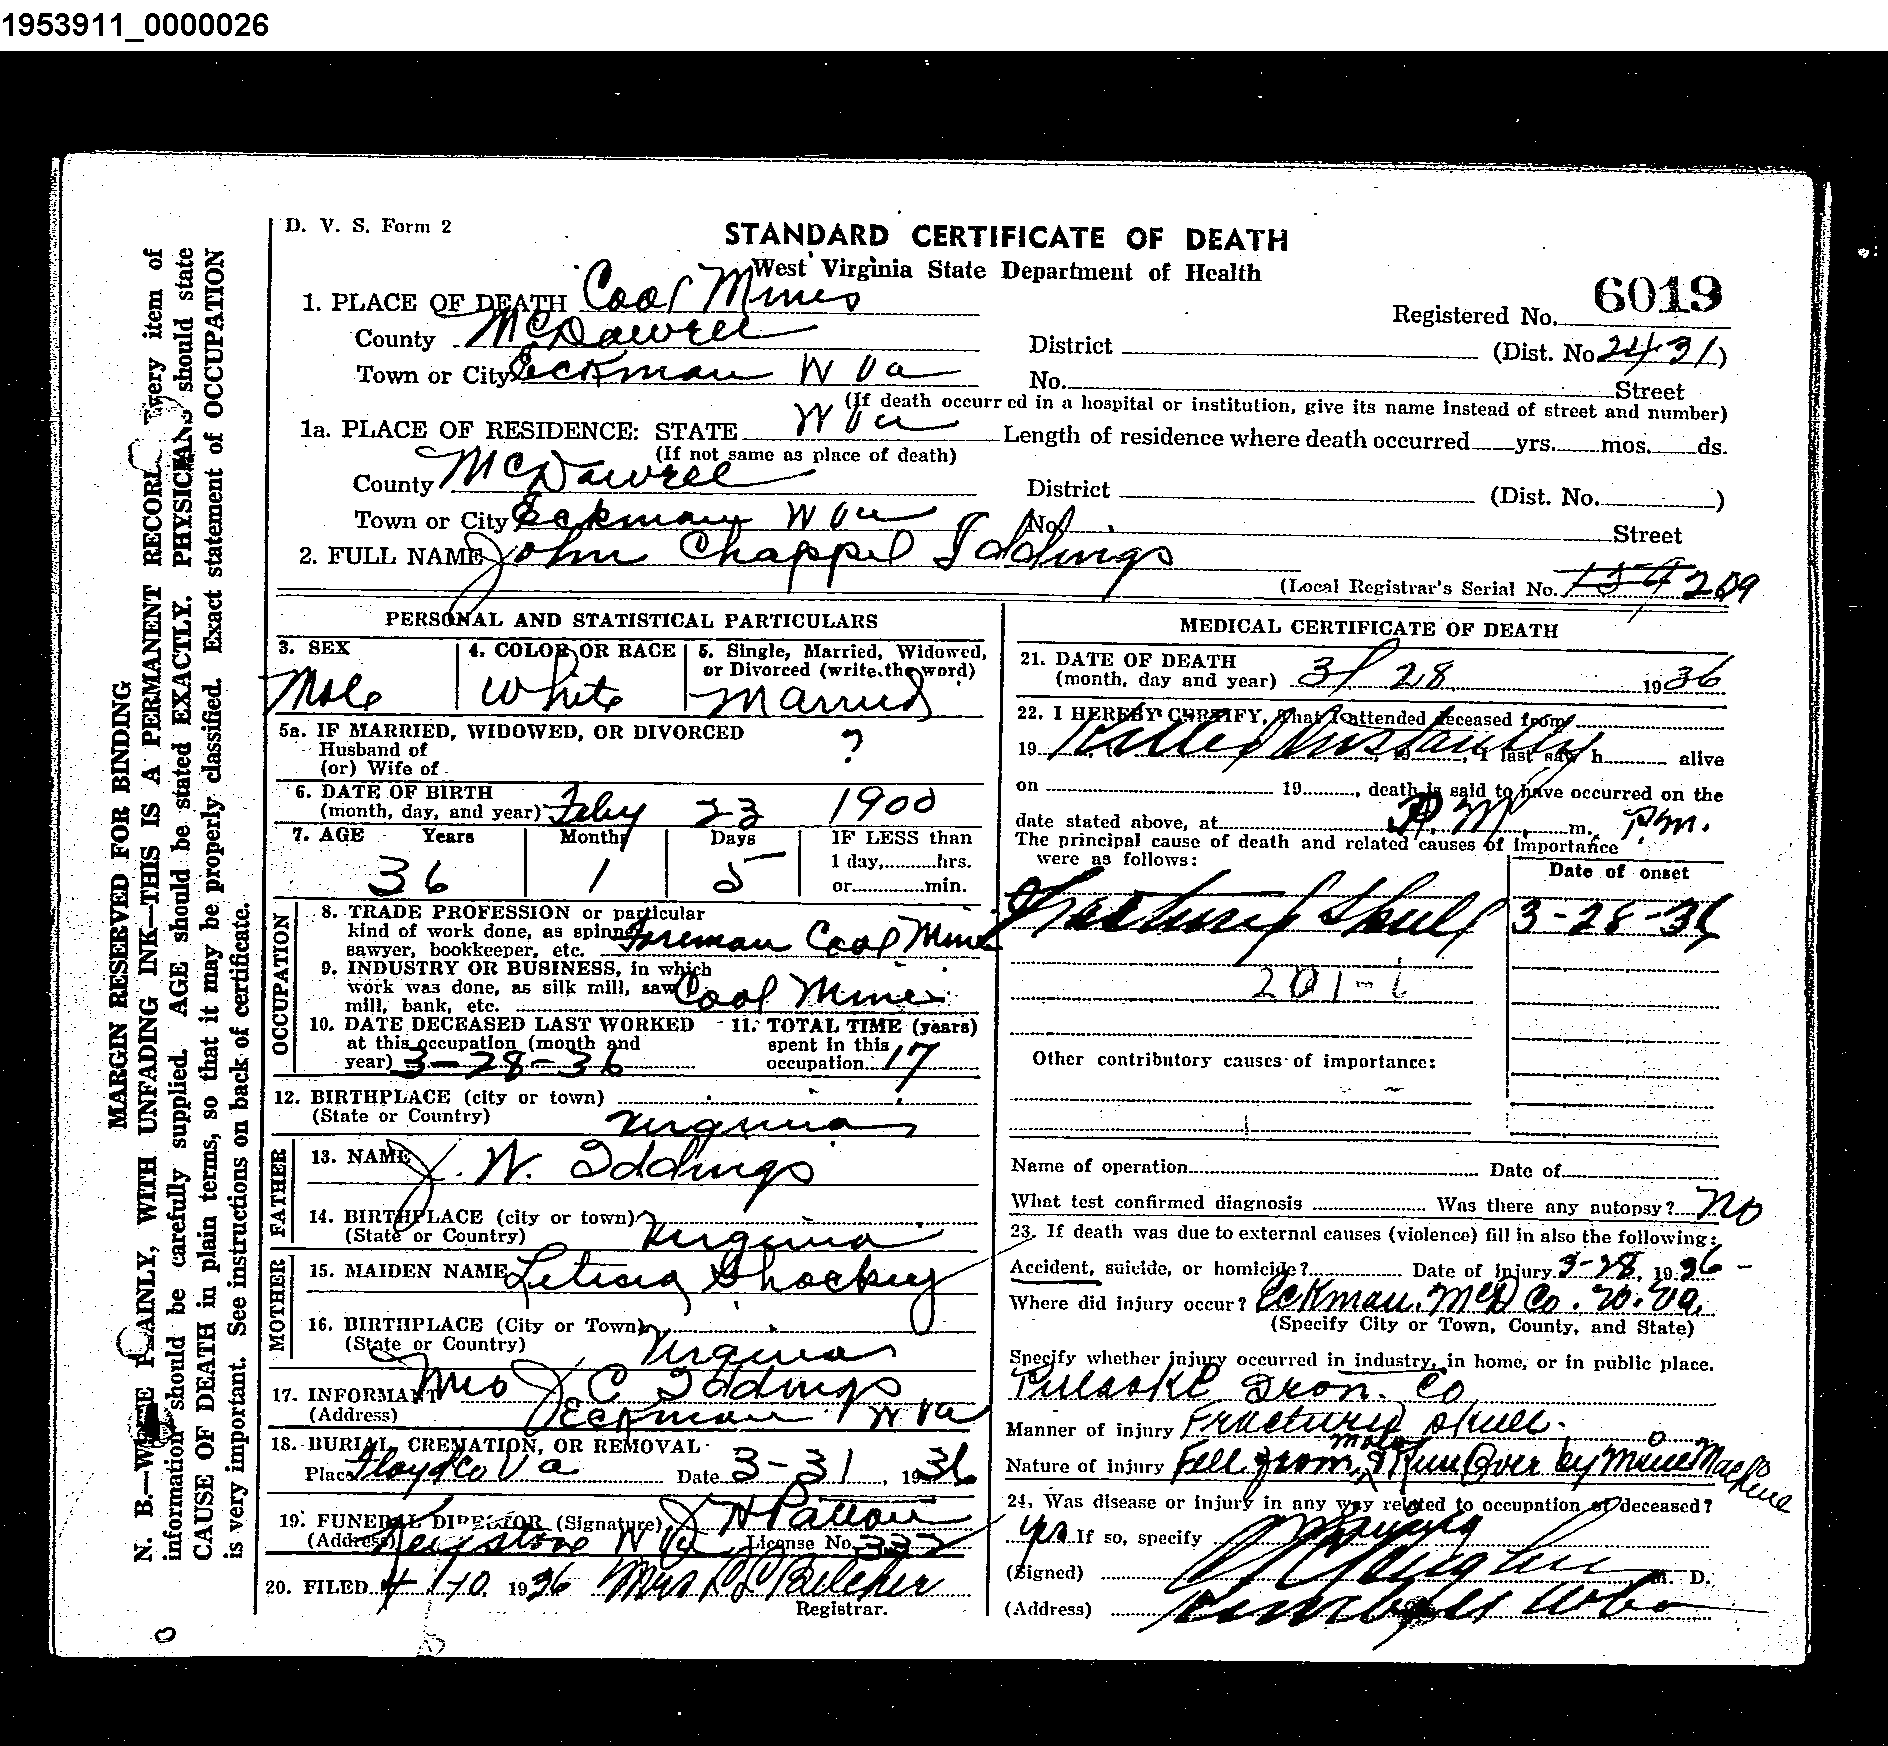 1953911_0000026
D. V. S. Form 2
STANDARD CERTIFICATE OF DEATH
West Virginia State Department of Health
Registered No. 6019
1. PLACE OF DEATH Coal Mines
County McDowell
District (Dist. No. 2431)
Town or City Eckman W Va
No. Street
(If death occurred in a hospital or institution, give its name instead of street and number)
1a. PLACE OF RESIDENCE: STATE W Va
Length of residence where death occurred yrs. mos. ds.
(If not same as place of death)
County McDowell
District (Dist. No. )
Town or City Eckman W Va
No. Street
2. FULL NAME John Chappel Iddings
(Local Registrar's Serial No. 209
PERSONAL AND STATISTICAL PARTICULARS
3. SEX
Male
4. COLOR OR RACE
White
5. Single, Married, Widowed,
or Divorced (write the word)
Married
5a. IF MARRIED, WIDOWED, OR DIVORCED
Husband of
(or) Wife of
?
6. DATE OF BIRTH
(month, day, and year) Feby 23 1900
7. AGE Years Months Days
36 1 5
IF LESS than
1 day, hrs.
or min.
OCCUPATION
8. TRADE PROFESSION or particular
kind of work done, as spinner,
sawyer, bookkeeper, etc. Foreman Coal Mine
9. INDUSTRY OR BUSINESS, in which
work was done, as silk mill, saw
mill, bank, etc. Coal Mine
10. DATE DECEASED LAST WORKED
at this occupation (month and
year) 3-28-36
11. TOTAL TIME (years)
spent in this
occupation 17
12. BIRTHPLACE (city or town)
(State or Country) Virginia
FATHER
13. NAME J. W. Iddings
14. BIRTHPLACE (city or town)
(State or Country) Virginia
MOTHER
15. MAIDEN NAME Leticia Shockey
16. BIRTHPLACE (City or Town)
(State or Country) Virginia
17. INFORMANT Mrs J C Iddings
(Address) Eckman W Va
18. BURIAL, CREMATION, OR REMOVAL
Place Floyd Co Va Date 3-31, 1936
19. FUNERAL DIRECTOR (Signature) J H Patton
(Address) Keystone W Va License No. 332
20. FILED 4/10 1936 Mrs Belcher
Registrar.
MEDICAL CERTIFICATE OF DEATH
21. DATE OF DEATH
(month, day and year) 3/28 1936
22. I HEREBY CERTIFY, That I attended deceased from
19 , 19 , I last saw h alive
Killed Instantly
on 19 , death is said to have occurred on the
date stated above, at m. P.m.
The principal cause of death and related causes of importance
were as follows:
Date of onset
Fractured Skull 3-28-36
201-
Other contributory causes of importance:
Name of operation Date of
What test confirmed diagnosis Was there any autopsy? No
23. If death was due to external causes (violence) fill in also the following:
Accident, suicide, or homicide? Date of injury 3-28, 1936
Where did injury occur? Eckman. McD Co. W. Va.
(Specify City or Town, County, and State)
Specify whether injury occurred in industry, in home, or in public place.
Pulaski Iron. Co
Manner of injury Fractured Skull.
Nature of injury Fell from motor & Run Over by Mine Machine
24. Was disease or injury in any way related to occupation of deceased?
Yes If so, specify Mining
(Signed) M. D.
(Address) Kimball W Va
MARGIN RESERVED FOR BINDING
N. B.—WRITE PLAINLY, WITH UNFADING INK—THIS IS A PERMANENT RECORD. Every item of
information should be carefully supplied. AGE should be stated EXACTLY. PHYSICIANS should state
CAUSE OF DEATH in plain terms, so that it may be properly classified. Exact statement of OCCUPATION
is very important. See instructions on back of certificate.